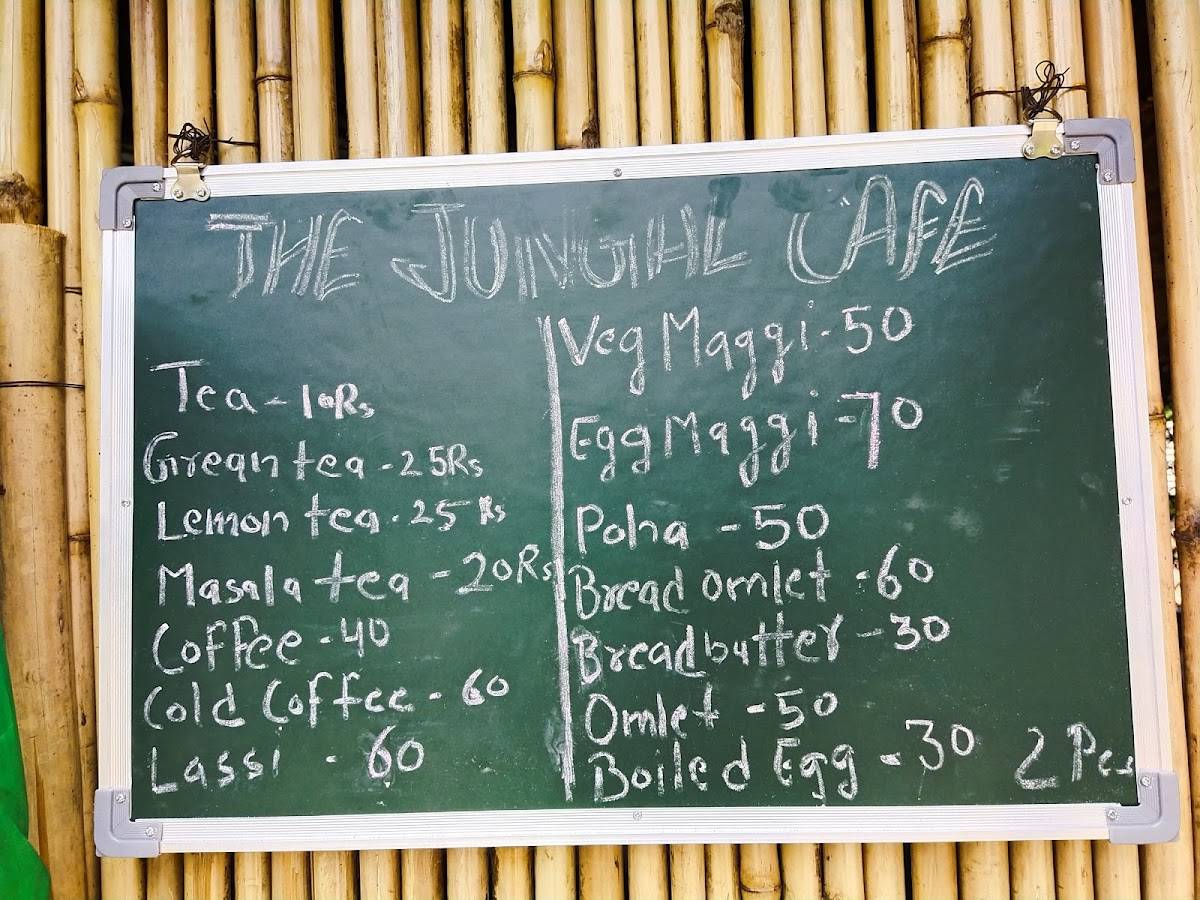 THE JUNGHL CAFE
Tea - 10Rs
Grean tea - 25Rs
Lemon tea - 25 Rs
Masala tea - 20Rs
Coffee - 40
Cold Coffee - 60
Lassi - 60
Veg Maggi - 50
Egg Maggi - 70
Poha - 50
Bread omlet - 60
Bread butter - 30
Omlet - 50
Boiled Egg - 30 2 Pcs